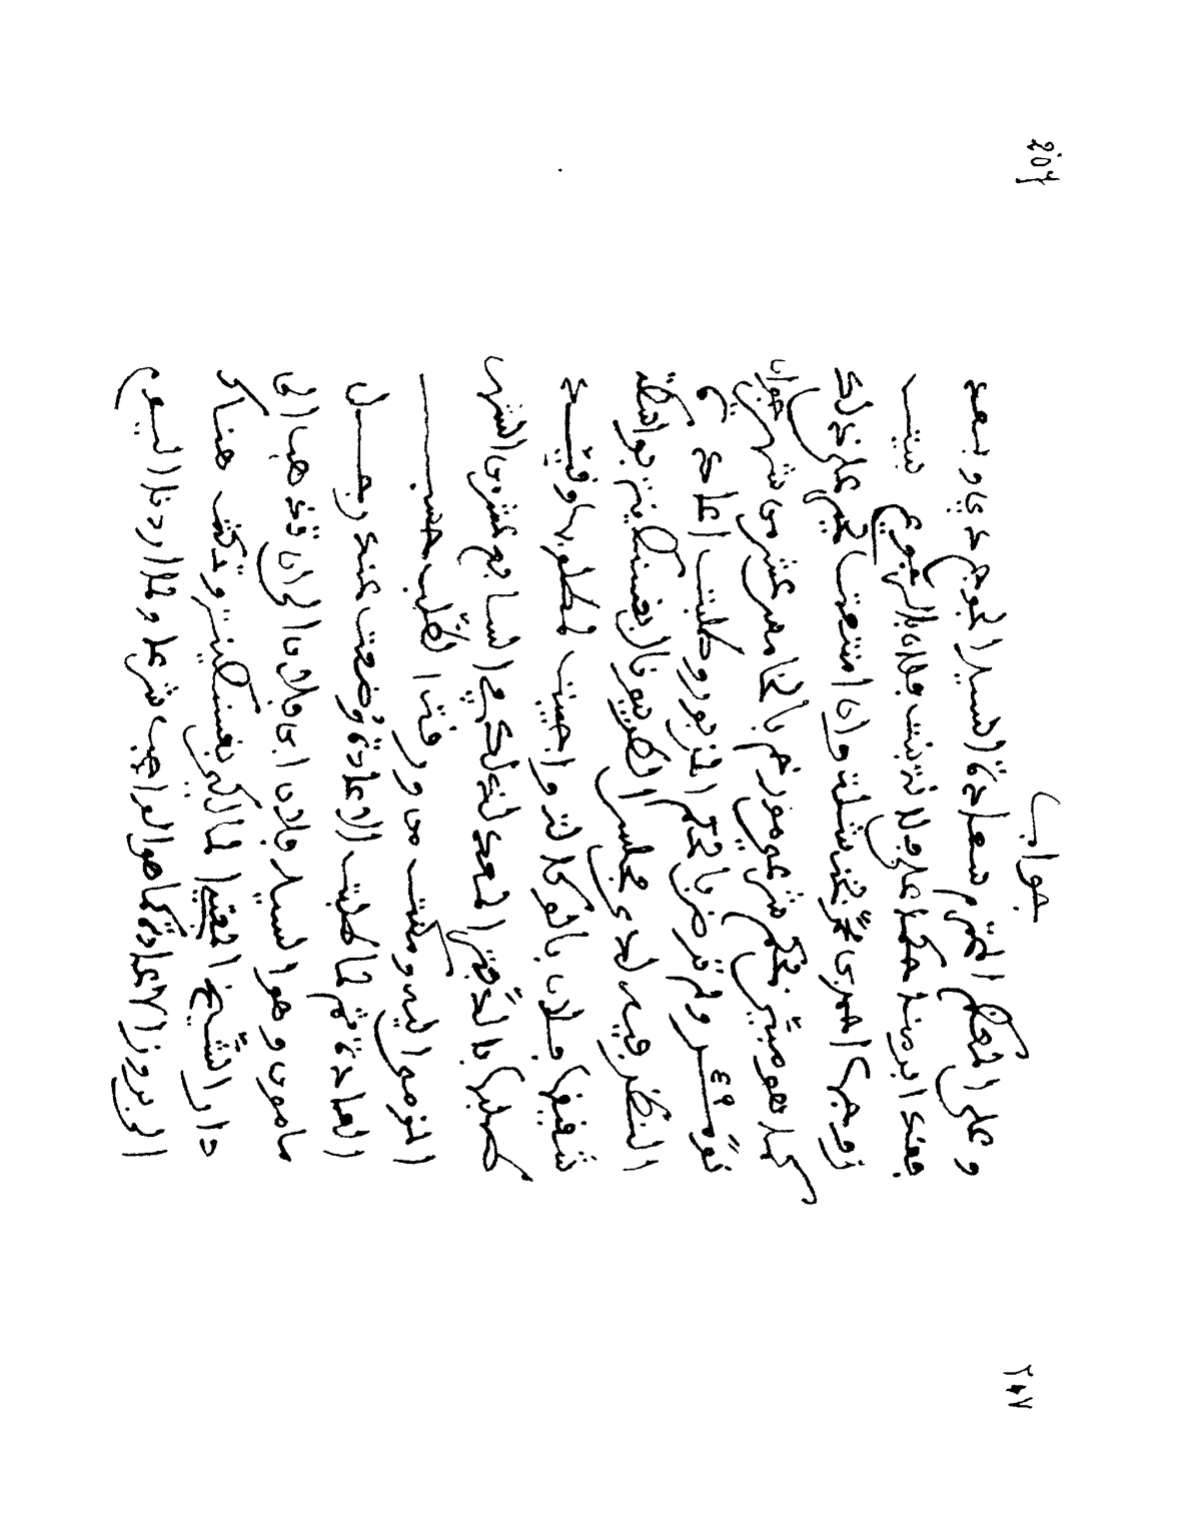 جواب
وعلى المعظم المحترم سعادة السيد وبعد
حكما على فلانة بنت فلان بالرجوع لبيت
زوجها وان امتنعت على ذلك
كما هو مبين بحكم شرعي مورخ بالخامس عشر من شهر جوان
نومـر ٤٩ ولم ترض بالحكم المزبور وطلبت اعادة
النظر فيه لدى مجلس الطريبونال بقسنطينة بواسطة
شقيقها فلان بالوكالة واجيبت لمطلوبها وقيد
بالدفتر المعد لذلك في السابع عشر من الشهر
المومى اليه ومكنت من ورقة الطلب حسب
العادة ثم لما طلبت الاعادة وضعت عند رجل
مامون وهو السيد فلان ابن فلان الى ان الى
دار الشيخ المالكي بقسنطينة هناك
الى بروز الاعادة بما هو الواجب شرعا وهذا
٢٠٧